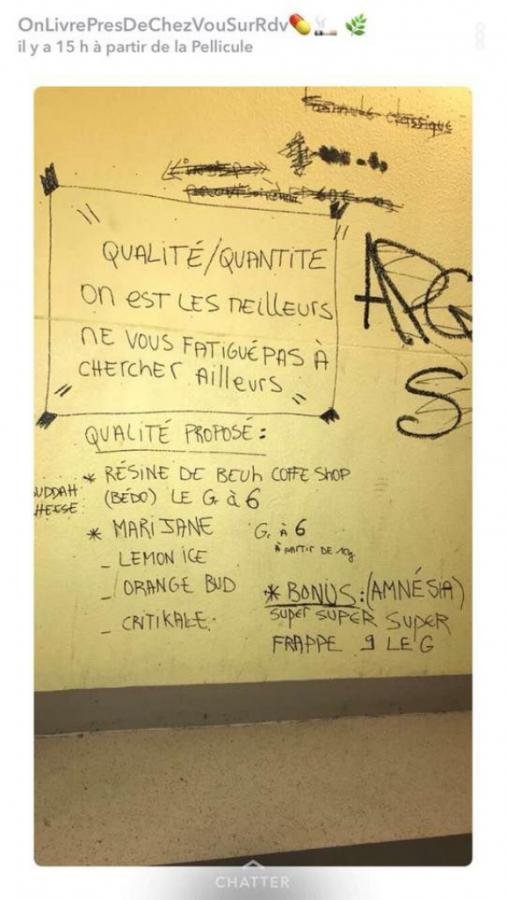 OnLivrePresDeChezVouSurRdv💊🚬🌿
il y a 15 h à partir de la Pellicule
classique
QUALITÉ/QUANTITE
ON EST LES MEILLEURS
NE VOUS FATIGUÉ PAS À
CHERCHER AILLEURS
APG
S
QUALITÉ PROPOSÉ :
* RÉSINE DE BEUH COFFE SHOP
(BÉDO) LE G à 6
UDDAH
HEESE
* MARIJANE G. À 6
À PARTIR DE 10g
_ LEMON ICE
_ ORANGE BUD
_ CRITIKALE.
* BONUS : (AMNÉSIA)
SUPER SUPER SUPER
FRAPPE 9 LE G
CHATTER